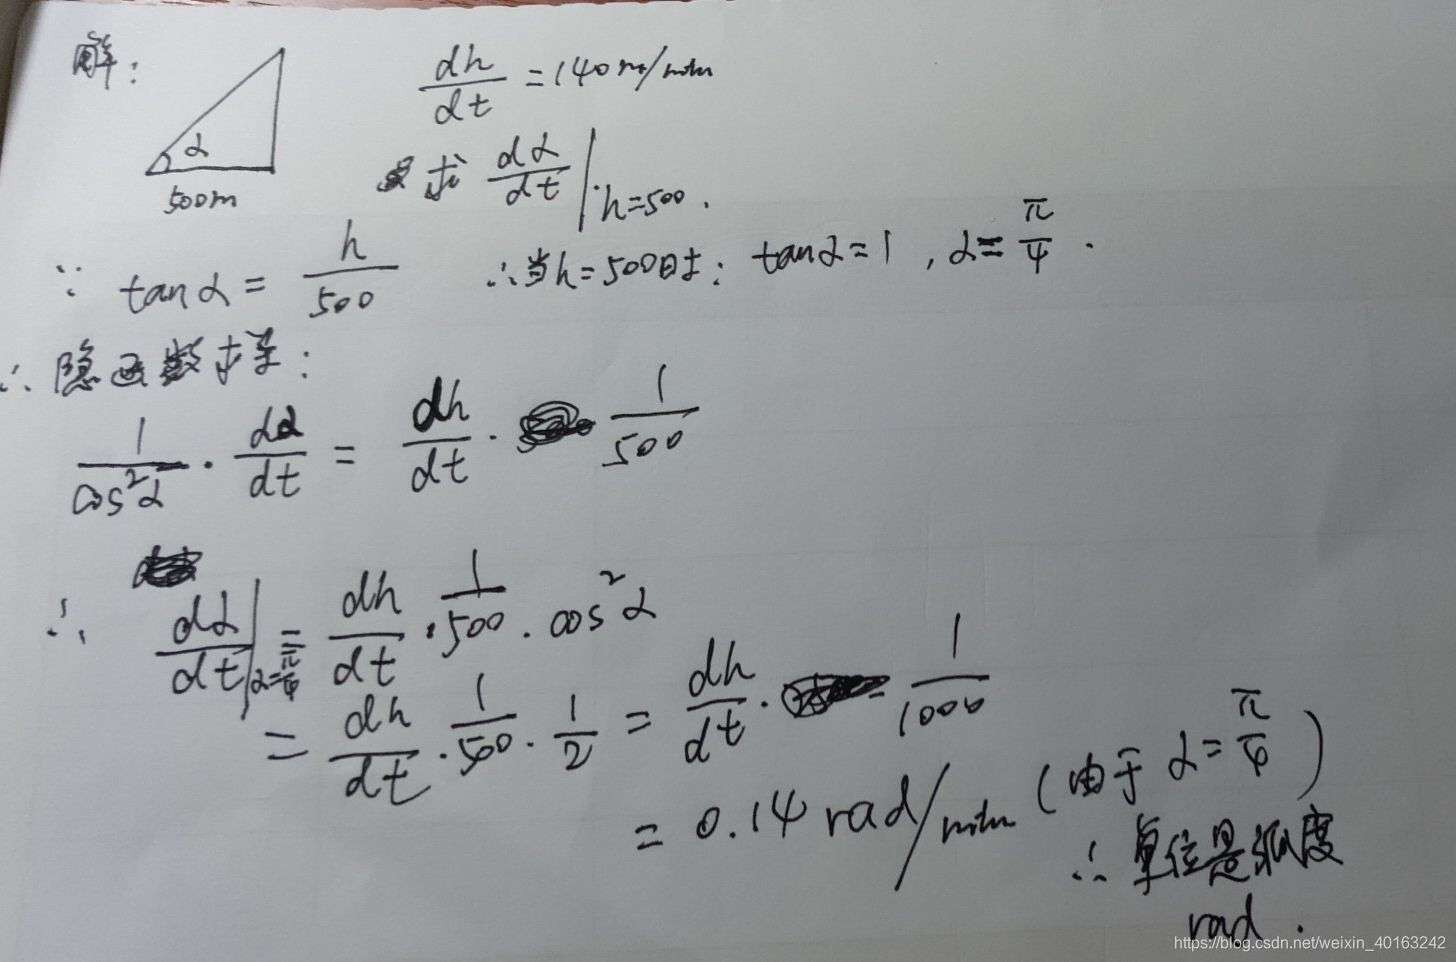 解:
dh/dt = 140m/min
α
500m
求 dα/dt |h=500 .
∵ tanα = h/500 ∴当h=500时: tanα=1 , α=π/4 .
∴ 隐函数求导:
1/cos²α · dα/dt = dh/dt · 1/500
∴ dα/dt |α=π/4 = dh/dt · 1/500 · cos²α
= dh/dt · 1/500 · 1/2 = dh/dt · 1/1000
= 0.14 rad/min (由于 α=π/4)
∴ 单位是弧度
rad .
https://blog.csdn.net/weixin_40163242